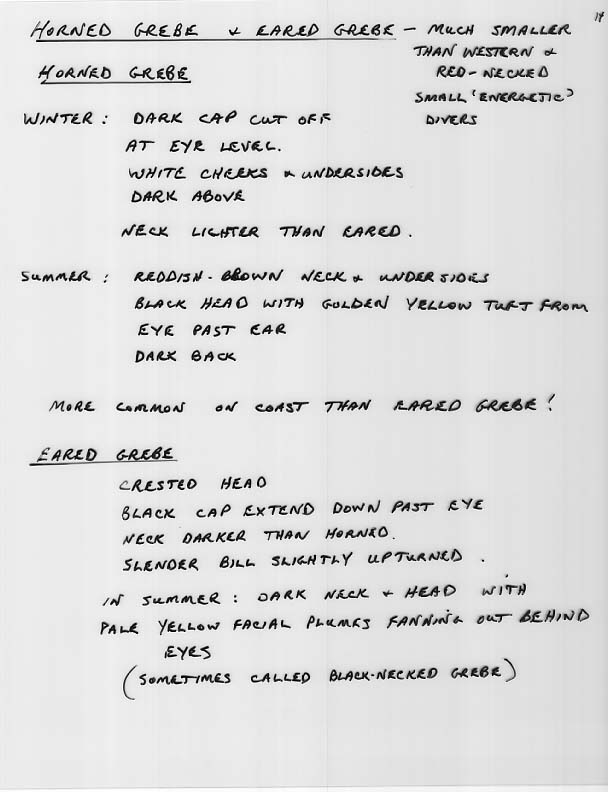 14
HORNED GREBE & EARED GREBE - MUCH SMALLER
THAN WESTERN &
RED-NECKED
SMALL 'ENERGETIC'
DIVERS
HORNED GREBE
WINTER: DARK CAP CUT OFF
AT EYE LEVEL.
WHITE CHEEKS & UNDERSIDES
DARK ABOVE
NECK LIGHTER THAN EARED.
SUMMER: REDDISH-BROWN NECK & UNDERSIDES
BLACK HEAD WITH GOLDEN YELLOW TUFT FROM
EYE PAST EAR
DARK BACK
MORE COMMON ON COAST THAN EARED GREBE!
EARED GREBE
CRESTED HEAD
BLACK CAP EXTEND DOWN PAST EYE
NECK DARKER THAN HORNED.
SLENDER BILL SLIGHTLY UPTURNED.
IN SUMMER: DARK NECK & HEAD WITH
PALE YELLOW FACIAL PLUMES FANNING OUT BEHIND
EYES
(SOMETIMES CALLED BLACK-NECKED GREBE)